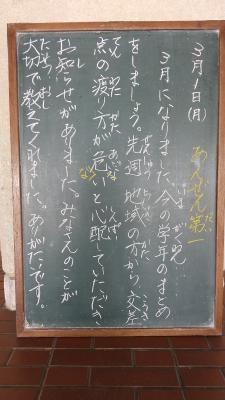 3月1日(月)
あんぜん第一
3月になりました。今の学年のまとめ
をしましょう。先週、地域の方から、交差
点の渡り方が危ないと心配していただき
お知らせがありました。みなさんのことが
大切で教えてくれました。ありがたいです。